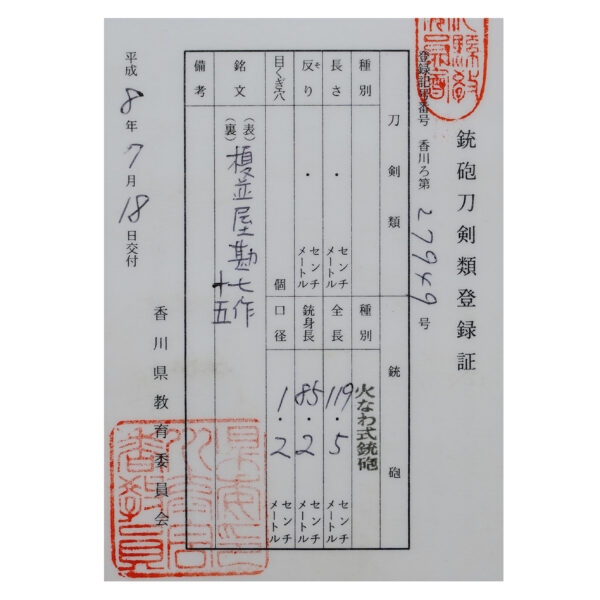 銃砲刀剣類登録証
登録記号番号 香川ろ第 27949 号
刀剣類
種別
長さ ・ センチメートル
反り ・ センチメートル
そ
目くぎ穴 個
銃砲
種別 火なわ式銃砲
全長 119・5 センチメートル
銃身長 85・2 センチメートル
口径 1・2 センチメートル
銘文 (表) 榎並屋勘七作
(裏) 十五
備考
平成8年7月18日交付
香川県教育委員会